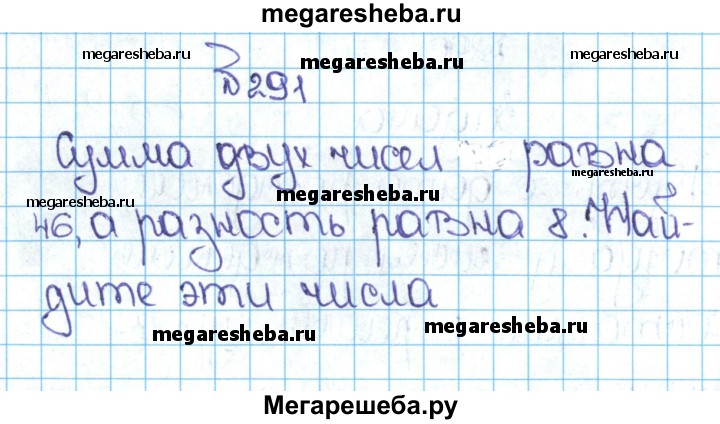 megaresheba.ru
megaresheba.ru megaresheba.ru megaresheba.ru
№291
Сумма двух чисел равна
megaresheba.ru megaresheba.ru megaresheba.ru
46, а разность равна 8. Най-
дите эти числа
megaresheba.ru megaresheba.ru
Мегарешеба.ру